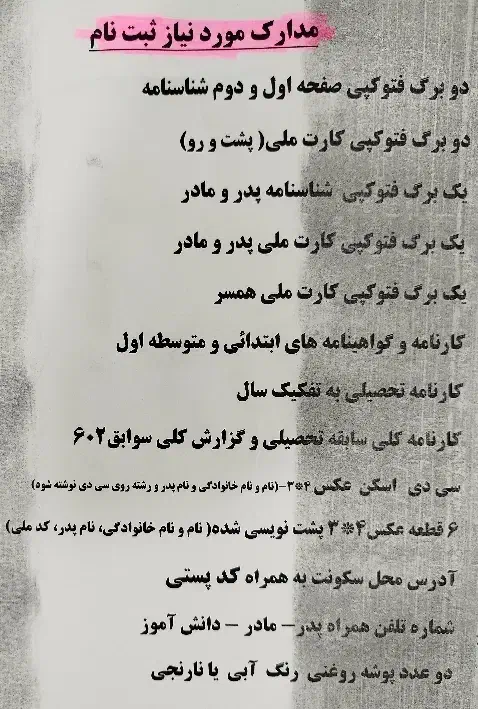 مدارک مورد نیاز ثبت نام
دو برگ فتوکپی صفحه اول و دوم شناسنامه
دو برگ فتوکپی کارت ملی( پشت و رو)
یک برگ فتوکپی شناسنامه پدر و مادر
یک برگ فتوکپی کارت ملی پدر و مادر
یک برگ فتوکپی کارت ملی همسر
کارنامه و گواهینامه های ابتدائی و متوسطه اول
کارنامه تحصیلی به تفکیک سال
کارنامه کلی سابقه تحصیلی و گزارش کلی سوابق۶۰۲
سی دی اسکن عکس ۴*۳-(نام و نام خانوادگی و نام پدر و رشته روی سی دی نوشته شود)
۶ قطعه عکس۴*۳ پشت نویسی شده( نام و نام خانوادگی، نام پدر، کد ملی)
آدرس محل سکونت به همراه کد پستی
شماره تلفن همراه پدر– مادر – دانش آموز
دو عدد پوشه روغنی رنگ آبی یا نارنجی